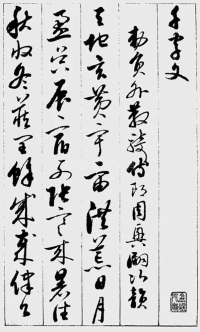 千字文
勅員外散騎侍郎周興嗣次韻
天地玄黃宇宙洪荒日月
盈昃辰宿列張寒來暑往
秋收冬藏閏餘成歲律呂